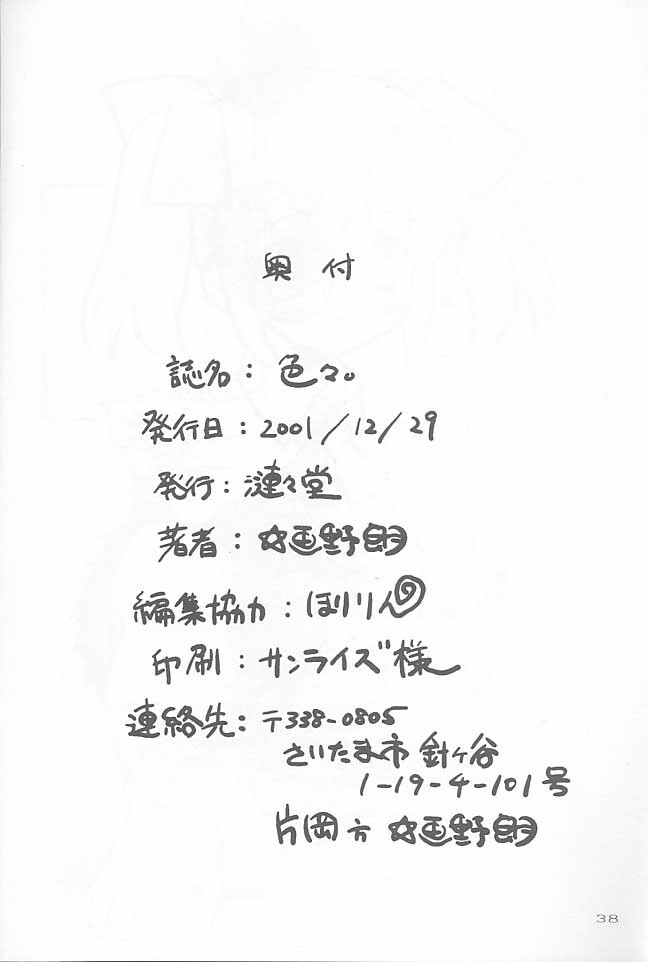 奥付
誌名：色々。
発行日：2001/12/29
発行：漣々堂
著者：☆画野朗
編集協力：ほりりん
印刷：サンライズ様
連絡先：〒338-0805
さいたま市針ヶ谷
1-19-4-101号
片岡方 ☆画野朗
38